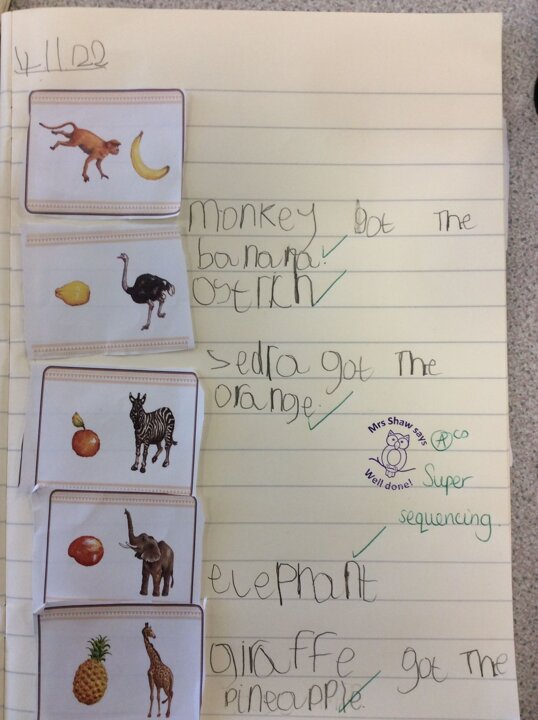 4/11/22
monkey got the
banana.
Ostrich
zedra got the
orange.
Mrs Shaw says
Well done!
A co
Super
sequencing.
elephant
giraffe got the
pineapple.